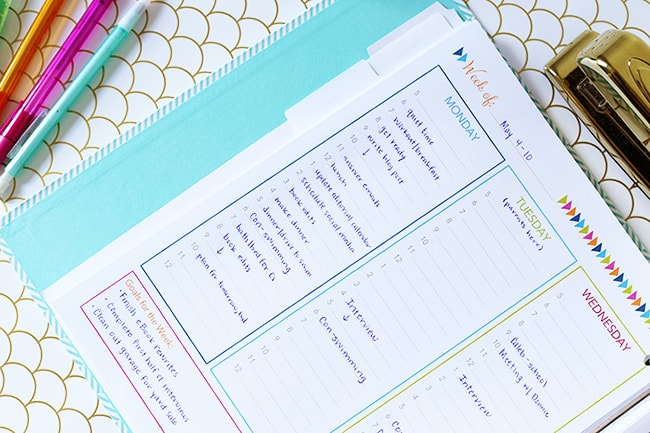 Week of:
May 4-10
MONDAY
5
6 quiet time
7 workout/breakfast
8 get ready
9 write blog post
10 ↓
11 answer emails
12 lunch
1 update editorial calendar
2 schedule social media
3 book edits
4 make dinner
5 dinner/drive to swim
6 Con-swimming
7 bath/bed for
8 book edits
9 ↓
10 plan for tomorrow, bed
12
TUESDAY
(parents here)
5
6
7
8
9
10
11
12
1
2
3
4 Interview
5 ↓
6 Con-swimming
7
8
9
10
12
WEDNESDAY
5
6
7
8
9 Caleb-school
10 Meeting w/ Donnie
11
12
1 Interview
2
3
4
5
Goals for the Week:
• Finish eBook rewrites
• Complete first half of interviews
• Clean out garage for yard sale